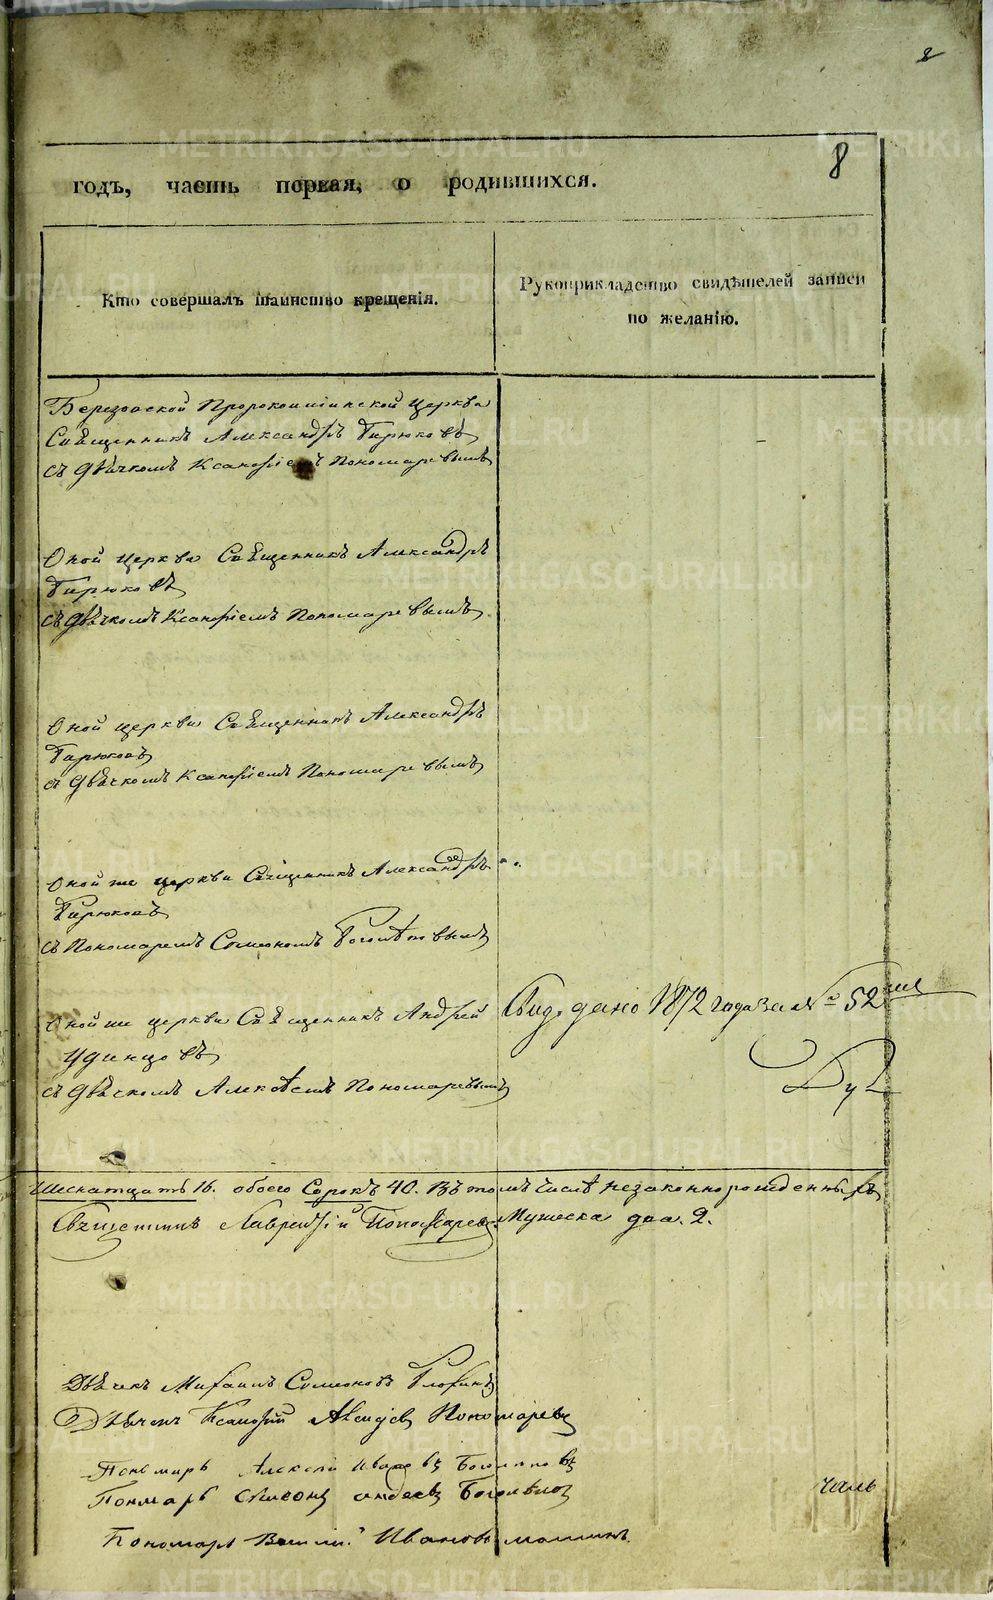 8
8
годъ, часть первая, о родившихся.
Кто совершалъ таинство крещенія.
Рукоприкладство свидѣтелей записи
по желанію.
Березовской Пророкоильинской Церкви
Священникъ Александръ Бирюковъ
съ Дьячкомъ Ксанофіемъ Пономаревымъ
Оной церкви Священникъ Александръ
Бирюковъ
съ Дьячкомъ Ксанофіемъ Пономаревымъ
Оной церкви Священникъ Александръ
Бирюковъ
съ Дьячкомъ Ксанофіемъ Пономаревымъ
Оной же церкви Священникъ Александръ
Бирюковъ
съ Пономаремъ Симеономъ Боголѣповымъ
Оной же церкви Священникъ Андрей
Удинцовъ
съ Дьячкомъ Алексѣемъ Пономаревымъ
Свид. дано 1872 года за № 52
Шеснатцать 16. обоего Сорокъ 40. Въ томъ числѣ незаконнорожденныхъ
Священникъ Лаврентій Пономаревъ Мужеска два. 2.
Дьячекъ Михаилъ Симеоновъ
Дьячекъ Ксанофій Пономаревъ
Пономарь Алексѣй
Пономарь Симеонъ
Пономарь Ивановъ
часть
METRIKI.GASO-URAL.RU